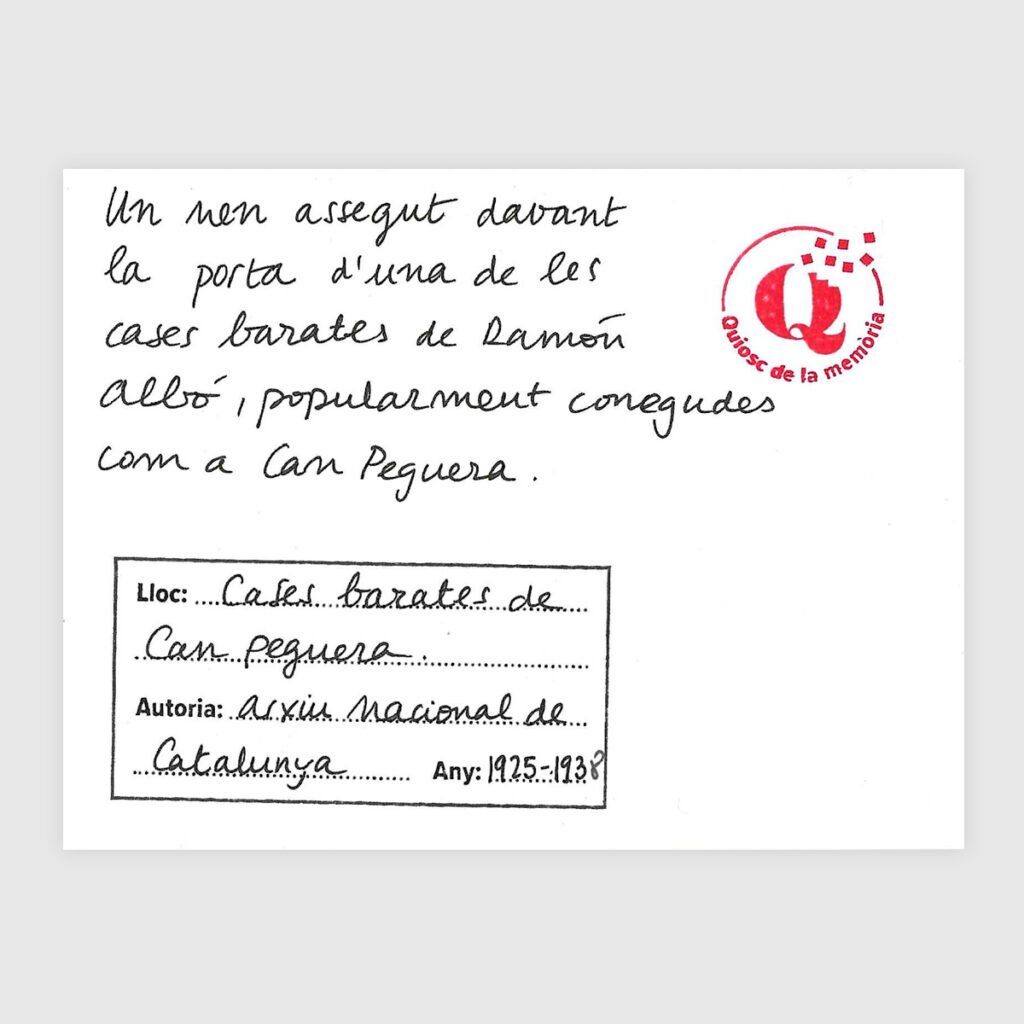 Un nen assegut davant
la porta d'una de les
cases barates de Ramón
Albó, popularment conegudes
com a Can Peguera.
Q
Quiosc de la memòria
Lloc: Cases barates de
Can Peguera.
Autoria: Arxiu Nacional de
Catalunya Any: 1925-1938